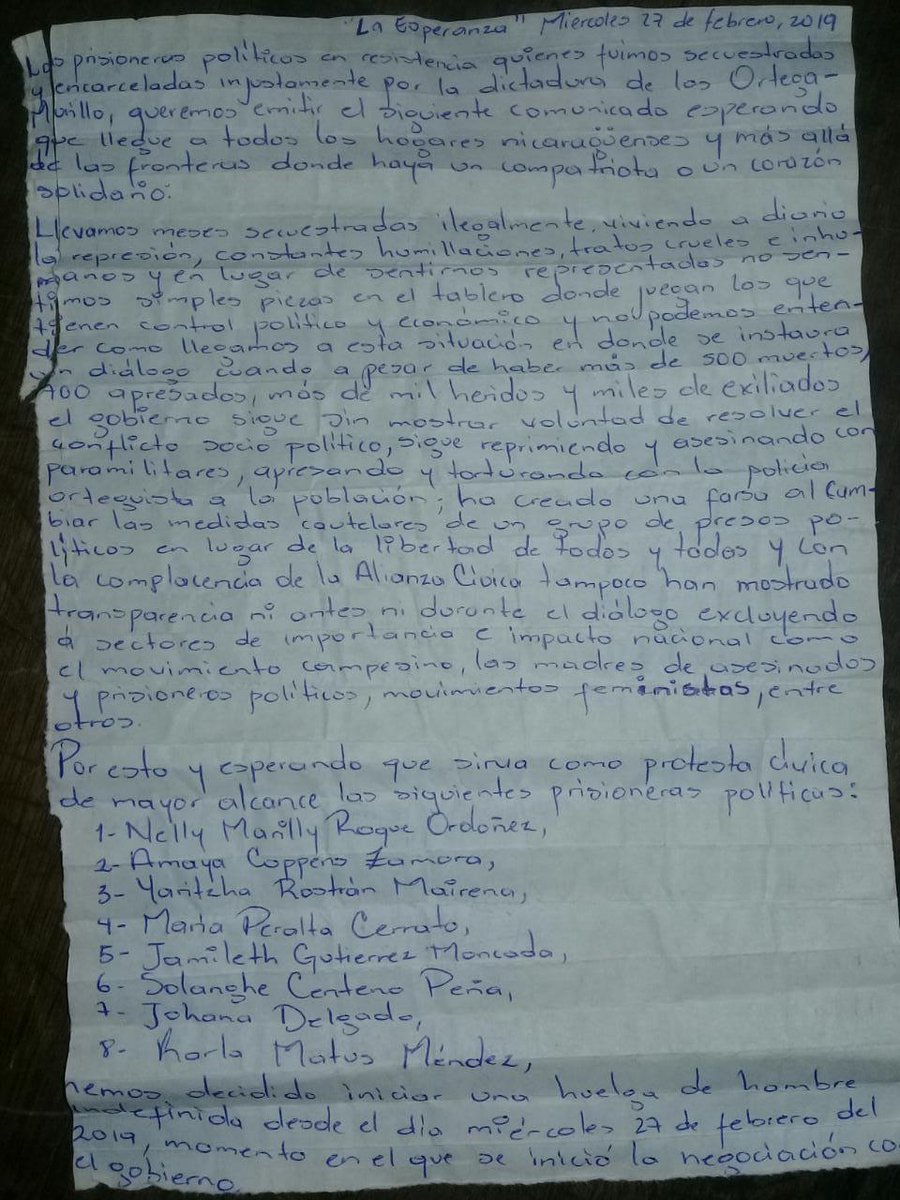 "La Esperanza" Miercoles 27 de febrero, 2019
Las prisioneras políticas en resistencia quienes fuimos secuestradas
y encarceladas injustamente por la dictadura de los Ortega-
Murillo, queremos emitir el siguiente comunicado esperando
que llegue a todos los hogares nicaragüenses y más allá
de las fronteras donde haya un compatriota o un corazón
solidario:
Llevamos meses secuestradas ilegalmente, viviendo a diario
la represión, constantes humillaciones, tratos crueles e inhu-
manos y en lugar de sentirnos representadas no sen-
timos simples piezas en el tablero donde juegan los que
tienen control político y económico y no podemos enten-
der como llegamos a esta situación en donde se instaura
un diálogo cuando a pesar de haber más de 500 muertos,
700 apresados, más de mil heridos y miles de exiliados
el gobierno sigue sin mostrar voluntad de resolver el
conflicto socio político, sigue reprimiendo y asesinando con
paramilitares, apresando y torturando con la policía
orteguista a la población; ha creado una farsa al cam-
biar las medidas cautelares de un grupo de presos po-
líticos en lugar de la libertad de todas y todos y con
la complacencia de la Alianza Cívica tampoco han mostrado
transparencia ni antes ni durante el diálogo excluyendo
a sectores de importancia e impacto nacional como
el movimiento campesino, las madres de asesinados
y prisioneros políticos, movimientos feministas, entre
otros.
Por esto y esperando que sirva como protesta cívica
de mayor alcance las siguientes prisioneras políticas:
1- Nelly Marilly Roque Ordoñez,
2- Amaya Coppens Zamora,
3- Yaritzha Rostrán Mairena,
4- María Peralta Cerrato,
5- Jamileth Gutierrez Moncada,
6- Solanghe Centeno Peña,
7- Johana Delgado,
8- Karla Matus Méndez,
hemos decidido iniciar una huelga de hambre
indefinida desde el día miércoles 27 de febrero del
2019, momento en el que se inició la negociación co
el gobierno.